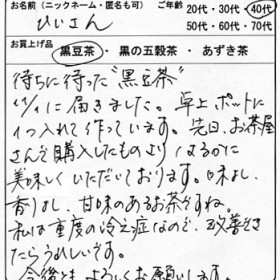 お名前(ニックネーム・匿名も可) ご年齢 20代・30代・40代
ひいさん 50代・60代・70代
お買上げ品
黒豆茶・黒の五穀茶・あずき茶
待ちに待った"黒豆茶"
11/1に届きました。卓上ポットに
1つ入れて作っています。先日、お茶屋
さんで購入したものよりはるかに
美味しくいただいております。味よし、
香りよし、甘味のあるお茶ですね。
私は重度の冷え症なので、改善でき
たらうれしいです。
今後ともよろしくお願いします。